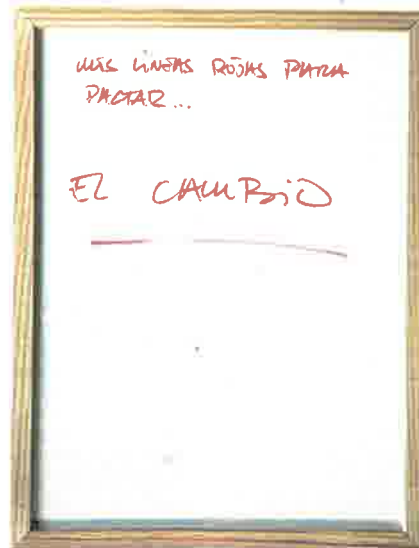 MIS LINEAS ROJAS PARA
PACTAR...
EL CAMBIO